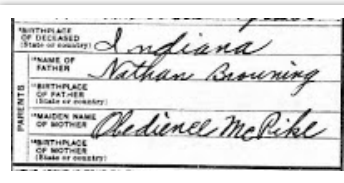 BIRTHPLACE
OF DECEASED
(State or country)
Indiana
NAME OF
FATHER
Nathan Browning
BIRTHPLACE
OF FATHER
(State or country)
PARENTS
MAIDEN NAME
OF MOTHER
Obedience McPike
BIRTHPLACE
OF MOTHER
(State or country)